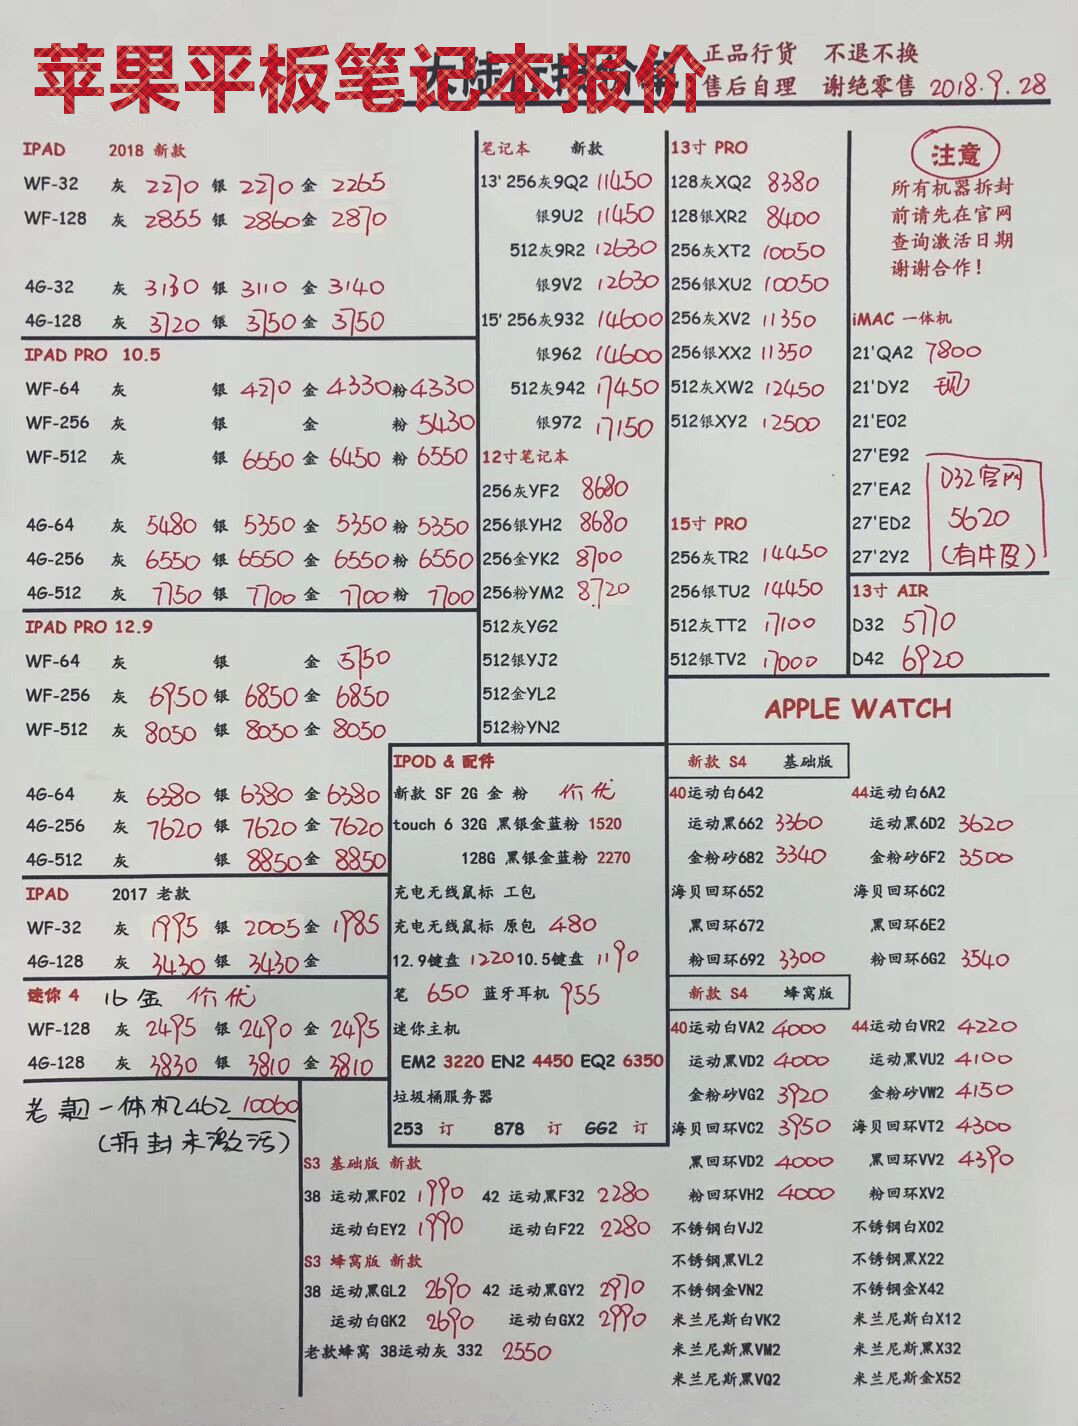 苹果平板笔记本报价
正品行货 不退不换
售后自理 谢绝零售 2018.9.28
IPAD 2018 新款
WF-32 灰 2270 银 2270 金 2265
WF-128 灰 2855 银 2860 金 2870
4G-32 灰 3130 银 3110 金 3140
4G-128 灰 3720 银 3750 金 3750
IPAD PRO 10.5
WF-64 灰 银 4270 金 4330 粉 4330
WF-256 灰 银 金 粉 5430
WF-512 灰 银 6550 金 6450 粉 6550
4G-64 灰 5480 银 5350 金 5350 粉 5350
4G-256 灰 6550 银 6550 金 6550 粉 6550
4G-512 灰 7750 银 7700 金 7700 粉 7700
IPAD PRO 12.9
WF-64 灰 银 金 5750
WF-256 灰 6950 银 6850 金 6850
WF-512 灰 8050 银 8050 金 8050
4G-64 灰 6380 银 6380 金 6380
4G-256 灰 7620 银 7620 金 7620
4G-512 灰 银 8850 金 8850
IPAD 2017 老款
WF-32 灰 1995 银 2005 金 1985
4G-128 灰 3430 银 3430 金
迷你 4 16金 价优
WF-128 灰 2495 银 2490 金 2495
4G-128 灰 3830 银 3810 金 3810
老款一体机462 10060
(拆封未激活)
笔记本 新款
13' 256灰9Q2 11450
银9U2 11450
512灰9R2 12630
银9V2 12630
15' 256灰932 14600
银962 14600
512灰942 17450
银972 17150
12寸笔记本
256灰YF2 8680
256银YH2 8680
256金YK2 8700
256粉YM2 8720
512灰YG2
512银YJ2
512金YL2
512粉YN2
13寸 PRO
128灰XQ2 8380
128银XR2 8400
256灰XT2 10050
256银XU2 10050
256灰XV2 11350
256银XX2 11350
512灰XW2 12450
512银XY2 12500
15寸 PRO
256灰TR2 14450
256银TU2 14450
512灰TT2 17100
512银TV2 17000
注意
所有机器拆封
前请先在官网
查询激活日期
谢谢合作!
iMAC 一体机
21'QA2 7800
21'DY2 现
21'E02
27'E92
27'EA2
27'ED2
27'2Y2
D32官网
5620
(有牛皮)
13寸 AIR
D32 5770
D42 6920
IPOD & 配件
新款 SF 2G 金 粉 价优
touch 6 32G 黑银金蓝粉 1520
128G 黑银金蓝粉 2270
充电无线鼠标 工包
充电无线鼠标 原包 480
12.9键盘 1220 10.5键盘 1190
笔 650 蓝牙耳机 955
迷你主机
EM2 3220 EN2 4450 EQ2 6350
垃圾桶服务器
253 订 878 订 GG2 订
S3 基础版 新款
38 运动黑F02 1990 42 运动黑F32 2280
运动白EY2 1990 运动白F22 2280
S3 蜂窝版 新款
38 运动黑GL2 2690 42 运动黑GY2 2970
运动白GK2 2690 运动白GX2 2990
老款蜂窝 38运动灰 332 2550
APPLE WATCH
新款 S4 基础版
40运动白642 44运动白6A2
运动黑662 3360 运动黑6D2 3620
金粉砂682 3340 金粉砂6F2 3500
海贝回环652 海贝回环6C2
黑回环672 黑回环6E2
粉回环692 3300 粉回环6G2 3540
新款 S4 蜂窝版
40运动白VA2 4000 44运动白VR2 4220
运动黑VD2 4000 运动黑VU2 4100
金粉砂VG2 3920 金粉砂VW2 4150
海贝回环VC2 3950 海贝回环VT2 4300
黑回环VD2 4000 黑回环VV2 4390
粉回环VH2 4000 粉回环XV2
不锈钢白VJ2 不锈钢白X02
不锈钢黑VL2 不锈钢黑X22
不锈钢金VN2 不锈钢金X42
米兰尼斯白VK2 米兰尼斯白X12
米兰尼斯黑VM2 米兰尼斯黑X32
米兰尼斯黑VQ2 米兰尼斯金X52